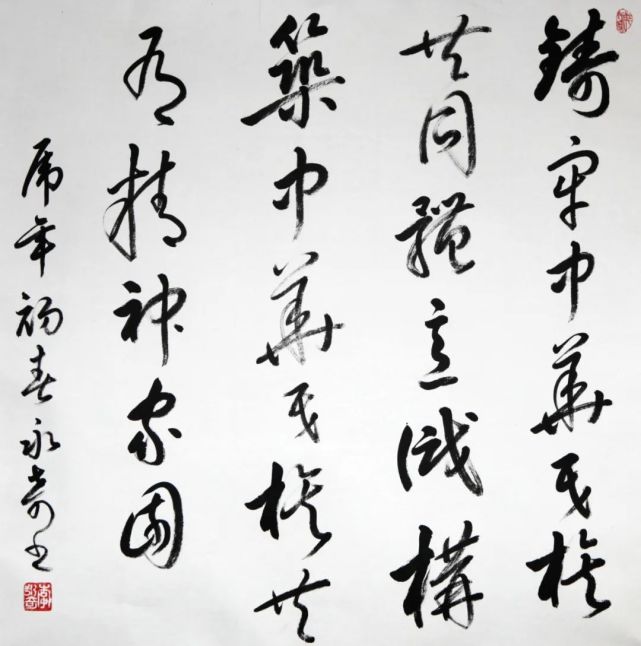 鑄牢中華民族
共同體意識構
築中華民族共
有精神家園
虎年初春永奇书